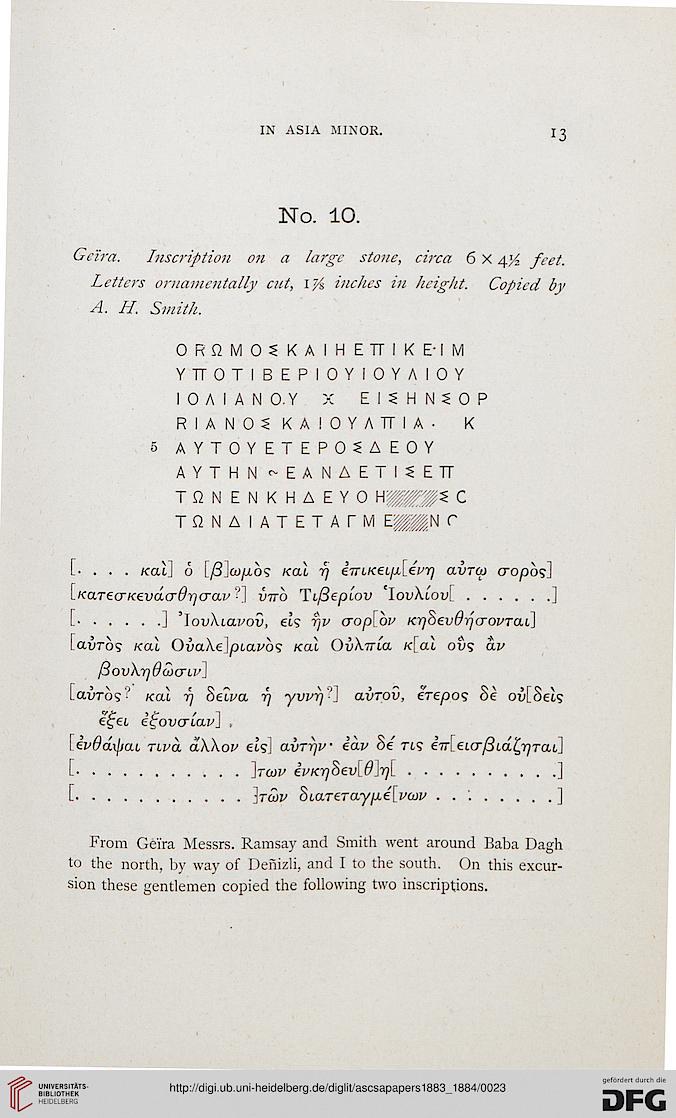 IN ASIA MINOR.
13
No. 10.
Geïra. Inscription on a large stone, circa 6 × 4½ feet.
Letters ornamentally cut, 1⅞ inches in height. Copied by
A. H. Smith.
ΟRΩΜΟΣΚΑΙΗΕΠΙΚΕΙΜ
ΥΠΟΤΙΒΕΡΙΟΥΙΟΥΛΙΟΥ
ΙΟΛΙΑΝΟ.Υ Χ ΕΙΣΗΝΣΟΡ
RΙΑΝΟΣΚΑΙΟΥΛΠΙΑ. Κ
5 ΑΥΤΟΥΕΤΕΡΟΣΔΕΟΥ
ΑΥΤΗΝ~ΕΑΝΔΕΤΙΣΕΠ
ΤΩΝΕΝΚΗΔΕΥΟΗ ΣC
ΤΩΝΔΙΑΤΕΤΑΓΜΕ Ν
[. . . . καὶ] ὁ [β]ωμὸς καὶ ἡ ἐπικειμ[ένη αὐτῳ σορὸς]
[κατεσκευάσθησαν?] ὑπὸ Τιβερίου Ἰουλίου[ . . . . . .]
[. . . . . .] Ἰουλιανοῦ, εἰς ἣν σορ[ὸν κηδευθήσονται]
[αὐτὸς καὶ Οὐαλε]ριανὸς καὶ Οὐλπία κ[αὶ οὓς ἂν
βουληθῶσιν]
[αὐτὸς? καὶ ἡ δεῖνα ἡ γυνὴ?] αὐτοῦ, ἕτερος δὲ οὐ[δεὶς
ἕξει ἐξουσίαν]
[ἐνθάψαι τινὰ ἄλλον εἰς] αὐτήν· ἐὰν δέ τις ἐπ[εισβιάζηται]
[. . . . . . . . . . . ]των ἐνκηδευ[θ]η[ . . . . . . . . . . .]
[. . . . . . . . . . . ]τῶν διατεταγμέ[νων . . . . . . . ]
From Geïra Messrs. Ramsay and Smith went around Baba Dagh
to the north, by way of Deñizli, and I to the south. On this excur-
sion these gentlemen copied the following two inscriptions.
UNIVERSITÄTS-
BIBLIOTHEK
HEIDELBERG
http://digi.ub.uni-heidelberg.de/diglit/ascsapapers1883_1884/0023
gefördert durch die
DFG